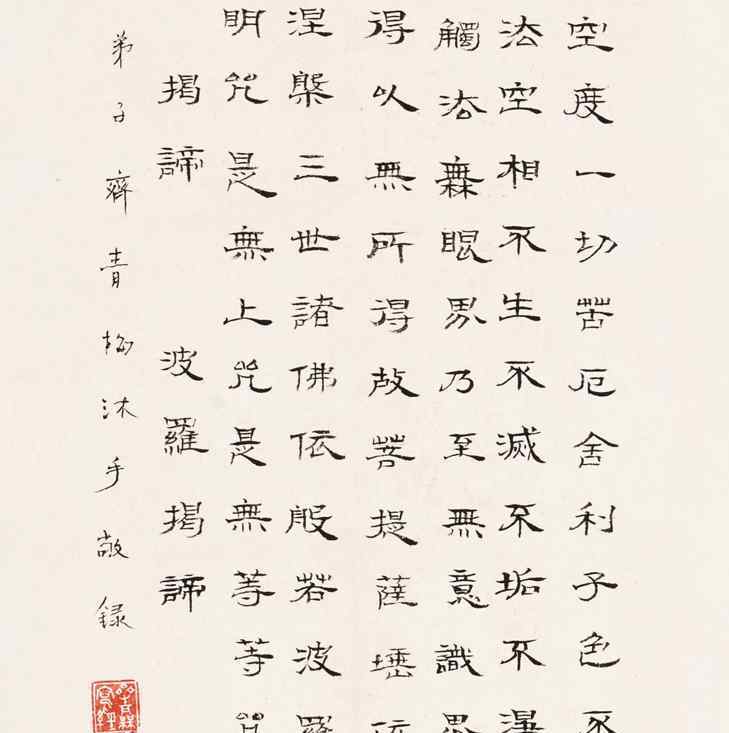 空度一切苦厄舍利子色不
法空相不生不滅不垢不淨
觸法無眼界乃至無意識界
得以無所得故菩提薩埵依
涅槃三世諸佛依般若波羅
明咒是無上咒是無等等咒
揭諦 波羅揭諦
弟子齊青梅沐手敬録